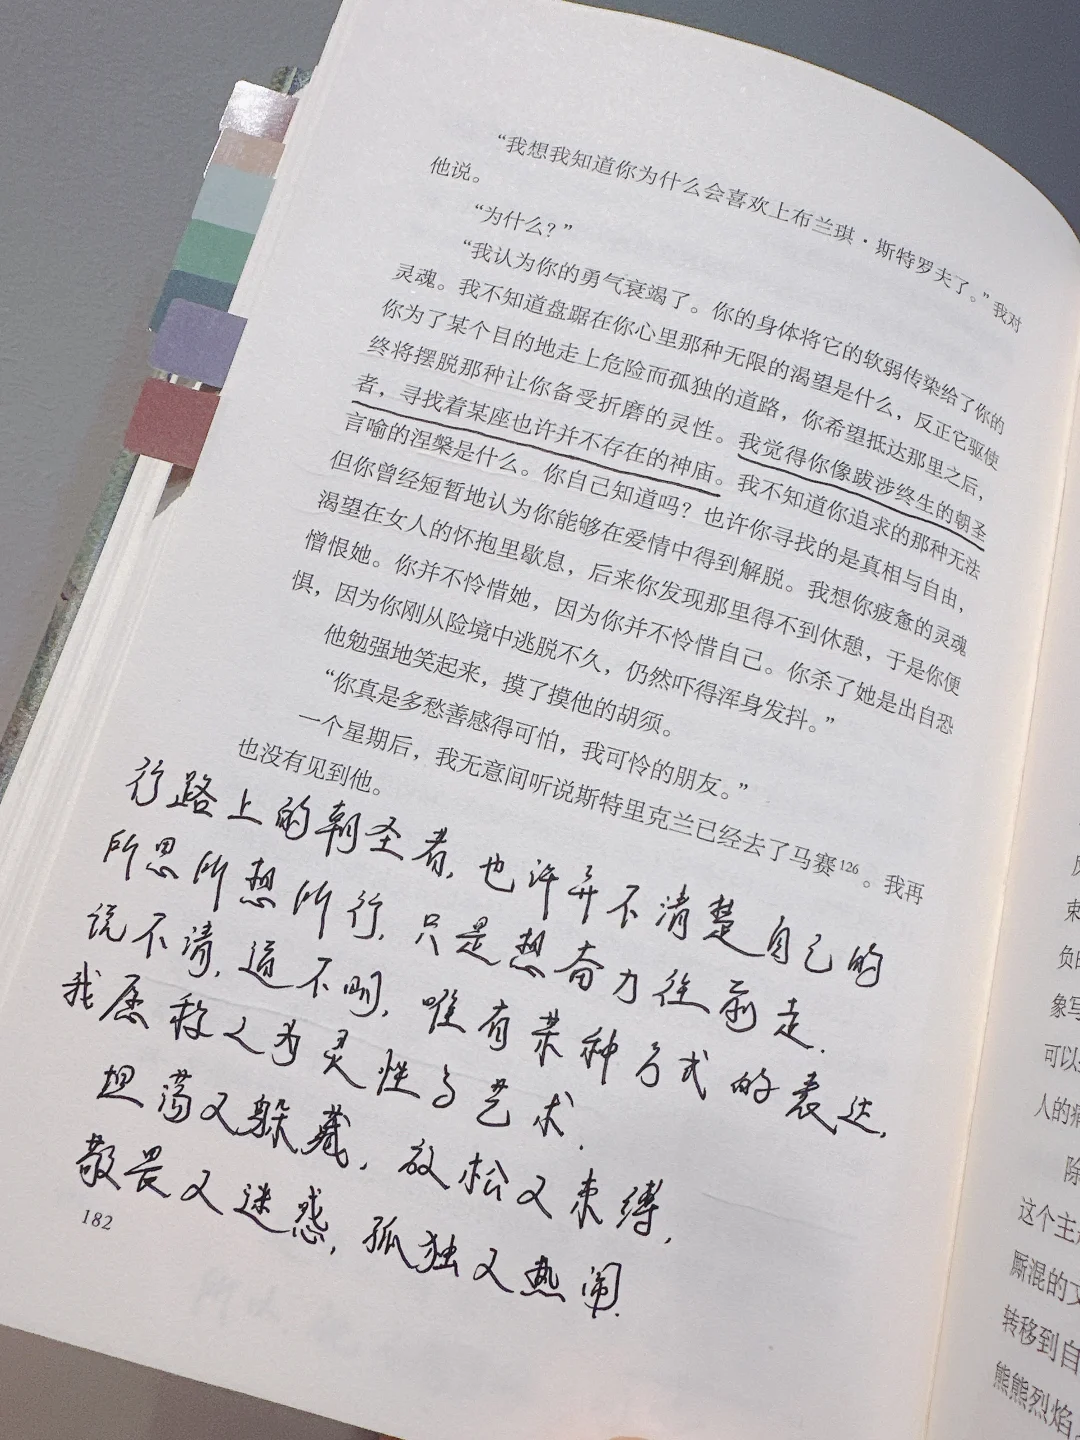 “我想我知道你为什么会喜欢上布兰琪·斯特罗夫了。”我对
他说。
“为什么？”
“我认为你的勇气衰竭了。你的身体将它的软弱传染给了你的
灵魂。我不知道盘踞在你心里那种无限的渴望是什么，反正它驱使
你为了某个目的地走上危险而孤独的道路，你希望抵达那里之后，
终将摆脱那种让你备受折磨的灵性。我觉得你像跋涉终生的朝圣
者，寻找着某座也许并不存在的神庙。我不知道你追求的那种无法
言喻的涅槃是什么。你自己知道吗？也许你寻找的是真相与自由，
但你曾经短暂地认为你能够在爱情中得到解脱。我想你疲惫的灵魂
渴望在女人的怀抱里歇息，后来你发现那里得不到休憩，于是你便
憎恨她。你并不怜惜她，因为你并不怜惜自己。你杀了她是出自恐
惧，因为你刚从险境中逃脱不久，仍然吓得浑身发抖。”
他勉强地笑起来，摸了摸他的胡须。
“你真是多愁善感得可怕，我可怜的朋友。”
一个星期后，我无意间听说斯特里克兰已经去了马赛126。我再
也没有见到他。
行路上的朝圣者，也许并不清楚自己的
所思所想所行，只是想奋力往前走．
说不清，道不明，唯有某种方式的表达，
我愿称之为灵性与艺术．
坦荡又躲藏，放松又束缚，
敬畏又迷惑，孤独又热闹．
182
束
象写
可以
人的痛
除
这个主
厮混的文
转移到自
熊熊烈焰